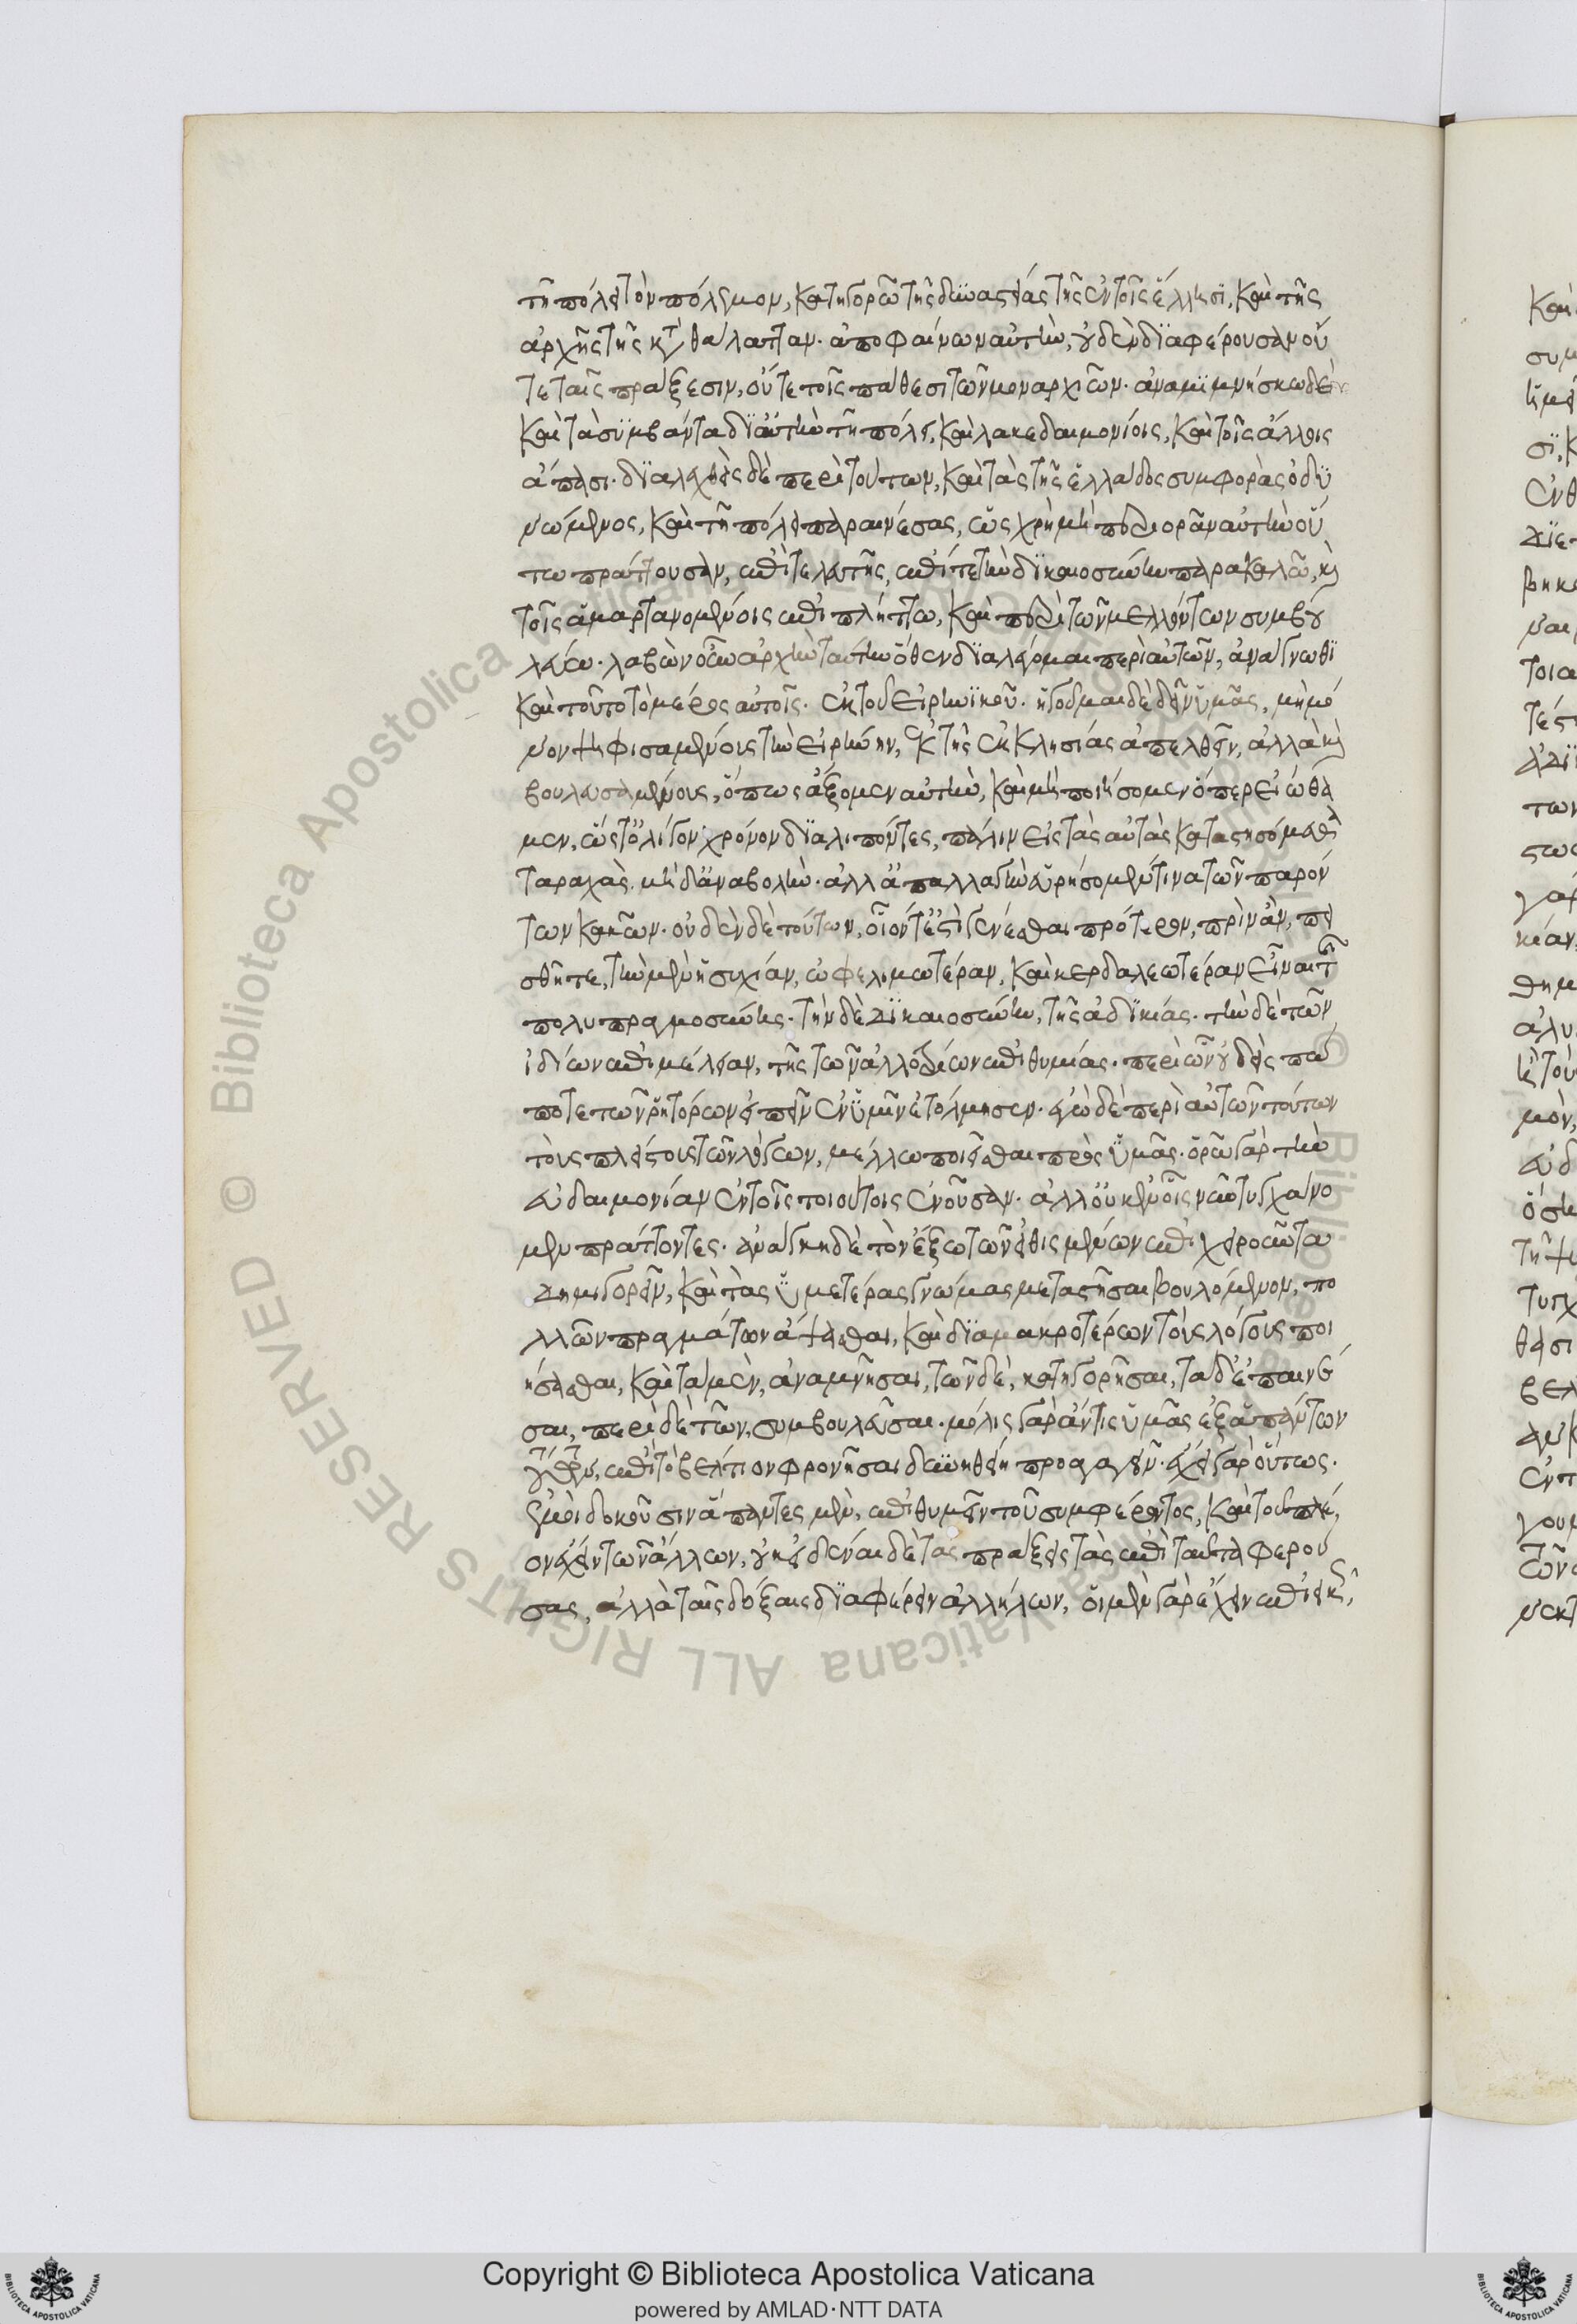 τῇ πόλει τὸν πόλεμον, κατηγορῶ τῆς δυναστείας τῆς ἐν τοῖς ἕλλησι, καὶ τῆς
ἀρχῆς τῆς κτ θάλατταν. ἀποφαίνων αὐτὴν, οὐδὲν διαφέρουσαν οὔ
τε ταῖς πράξεσιν, οὔτε τοῖς πάθεσι τῶν μοναρχιῶν. ἀναμιμνήσκω δὲ
καὶ τὰ συμβάντα δι αὐτὴν τῇ πόλει, καὶ λακεδαιμονίοις, καὶ τοῖς ἄλλοις
ἅπασι. διαλεχθεὶς δὲ περὶ τούτων, καὶ τὰς τῆς ἑλλάδος συμφορὰς ὀδυ
ρώμενος, καὶ τῇ πόλει παραινέσας, ὡς χρὴ μὴ περιορᾶν αὐτὴν οὕ
τω πράττουσαν, ἐπὶ τελευτῆς, ἐπί τε τὴν δικαιοσύνην παρακαλῶ, καὶ
τοῖς ἁμαρτανομένοις ἐπιπλήττω, καὶ περὶ τῶν μελλόντων συμβου
λεύω. λαβὼν οὖν ἀρχὴν ταύτην ὅθεν διαλέγομαι περὶ αὐτῶν, ἀνάγνωθι
καὶ τοῦτο τὸ μέρος αὐτοῖς. ἐκ τοῦ εἰρηνικοῦ. ἡγοῦμαι δὲ δεῖν ὑμᾶς, μὴ μό
νον ψηφισαμένους τὴν εἰρήνην, ἐκ τῆς ἐκκλησίας ἀπελθεῖν, ἀλλὰ καὶ
βουλευσαμένους, ὅπως ἄξομεν αὐτὴν, καὶ μὴ ποιήσομεν ὅπερ εἰώθα
μεν, ὡς τ ὀλίγον χρόνον διαλιπόντες, πάλιν εἰς τὰς αὐτὰς καταστησόμεθα
ταραχὰς. μὴ δ ἀναβολὴν. ἀλλ ἀπαλλαγὴν εὑρήσομέν τινα τῶν παρόν
των κακῶν. οὐδὲν δὲ τούτων, οἷόν τέ ἐστι γενέσθαι πρότερον, πρὶν ἂν, πει
σθῆτε, τὴν μὲν ἡσυχίαν, ὠφελιμωτέραν, καὶ κερδαλεωτέραν εἶναι τῆς
πολυπραγμοσύνης. τὴν δὲ δικαιοσύνην, τῆς ἀδικίας. τὴν δὲ τῶν
ἰδίων ἐπιμέλειαν, τῆς τῶν ἀλλοτρίων ἐπιθυμίας. περὶ ὧν οὐδεὶς πώ
ποτε τῶν ῥητόρων εἰπεῖν ἐν ὑμῖν ἐτόλμησεν. ἐγὼ δὲ περὶ αὐτῶν τούτων
τοὺς πλείστους τῶν λόγων, μέλλω ποιεῖσθαι πρὸς ὑμᾶς. ὁρῶ γὰρ τὴν
εὐδαιμονίαν ἐν τοῖς τοιούτοις ἐνοῦσαν. ἀλλ οὐκ ἐν οἷς νῦν τυγχάνο
μεν πράττοντες. ἀνάγκη δὲ τὸν ἔξω τῶν εἰθισμένων ἐπιχειροῦντα
δημηγορεῖν, καὶ τὰς ὑμετέρας γνώμας μεταστῆσαι βουλόμενον, πο
λλῶν πραγμάτων ἅψασθαι, καὶ διὰ μακροτέρων τοὺς λόγους ποι
ήσασθαι, καὶ τὰ μὲν, ἀναμνῆσαι, τῶν δὲ, κατηγορῆσαι, τὰ δ ἐπαινέ
σαι, περὶ δὲ τῶν, συμβουλεῦσαι. μόλις γὰρ ἄν τις ὑμᾶς ἐξ ἁπάντων
τούτων, ἐπὶ τὸ βέλτιον φρονῆσαι δυνηθείη προαγαγεῖν. ἔχει γὰρ οὕτως.
ἐμοὶ δοκοῦσιν ἅπαντες μὲν, ἐπιθυμεῖν τοῦ συμφέροντος, καὶ τοῦ πλέ
ον ἔχειν τῶν ἄλλων, οὐκ εἰδέναι δὲ τὰς πράξεις τὰς ἐπὶ ταῦτα φερού
σας, ἀλλὰ ταῖς δόξαις διαφέρειν ἀλλήλων, οἱ μὲν γὰρ ἔχειν ἐπιεικεῖς,
Copyright © Biblioteca Apostolica Vaticana
powered by AMLAD·NTT DATA